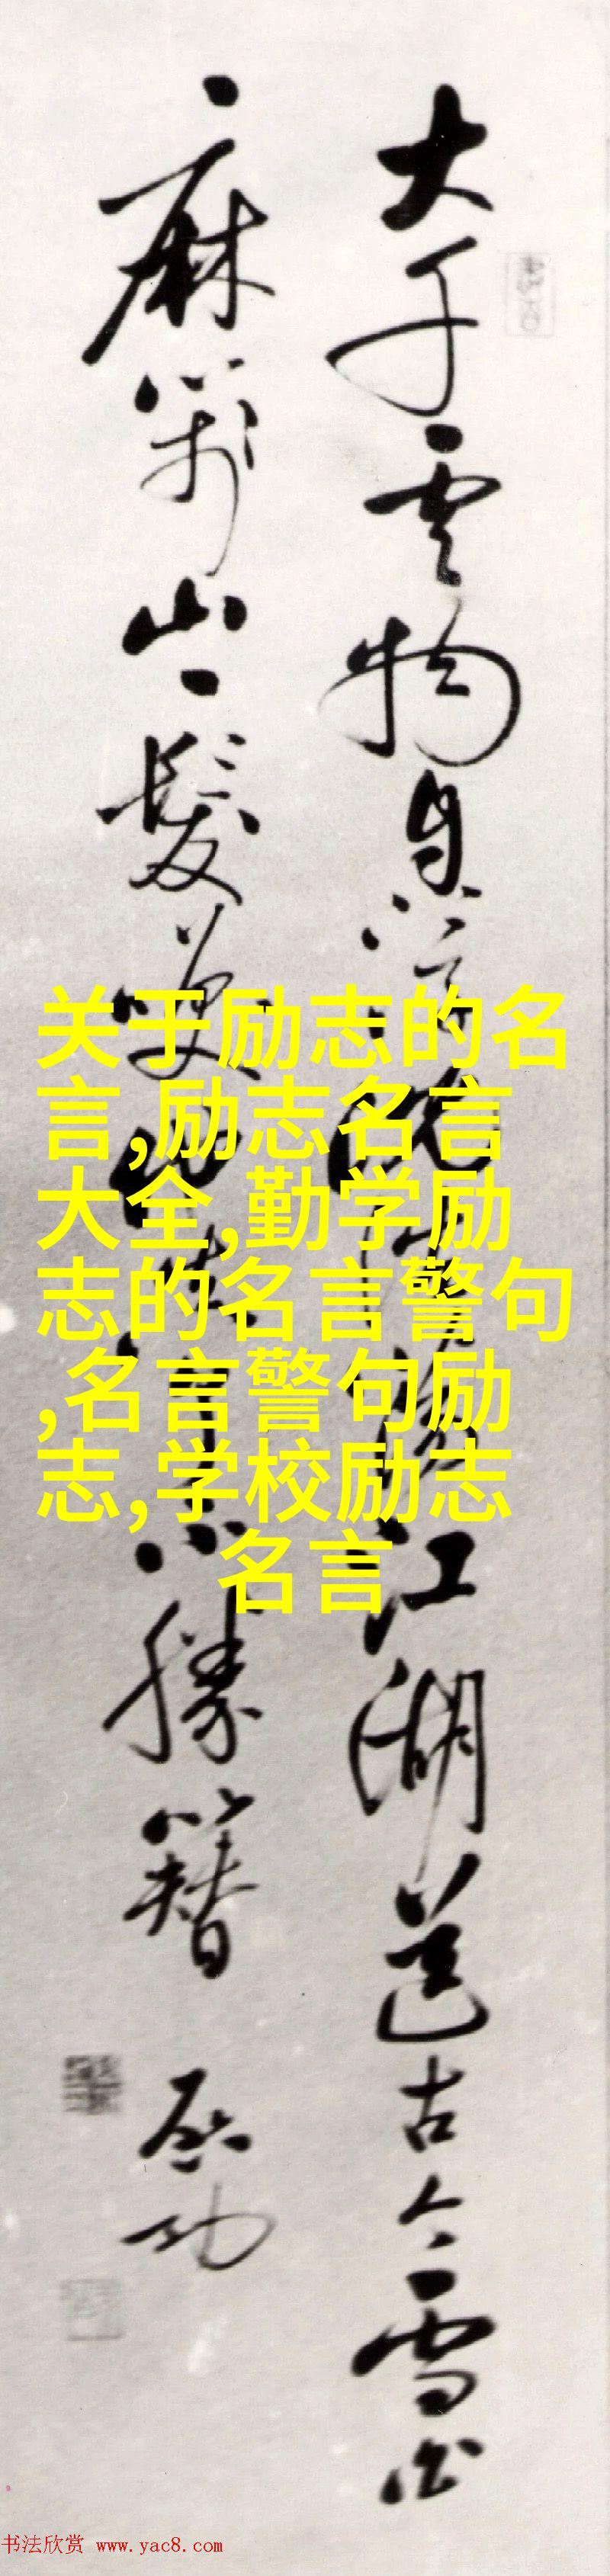 大千雲物自江湖送古今雪
萬山一髮笑他不勝簪
啟功
关于励志的名
言,励志名言
大全,勤学励
志的名言警句
,名言警句励
志,学校励志
名言
书法欣赏 www.yac8.com